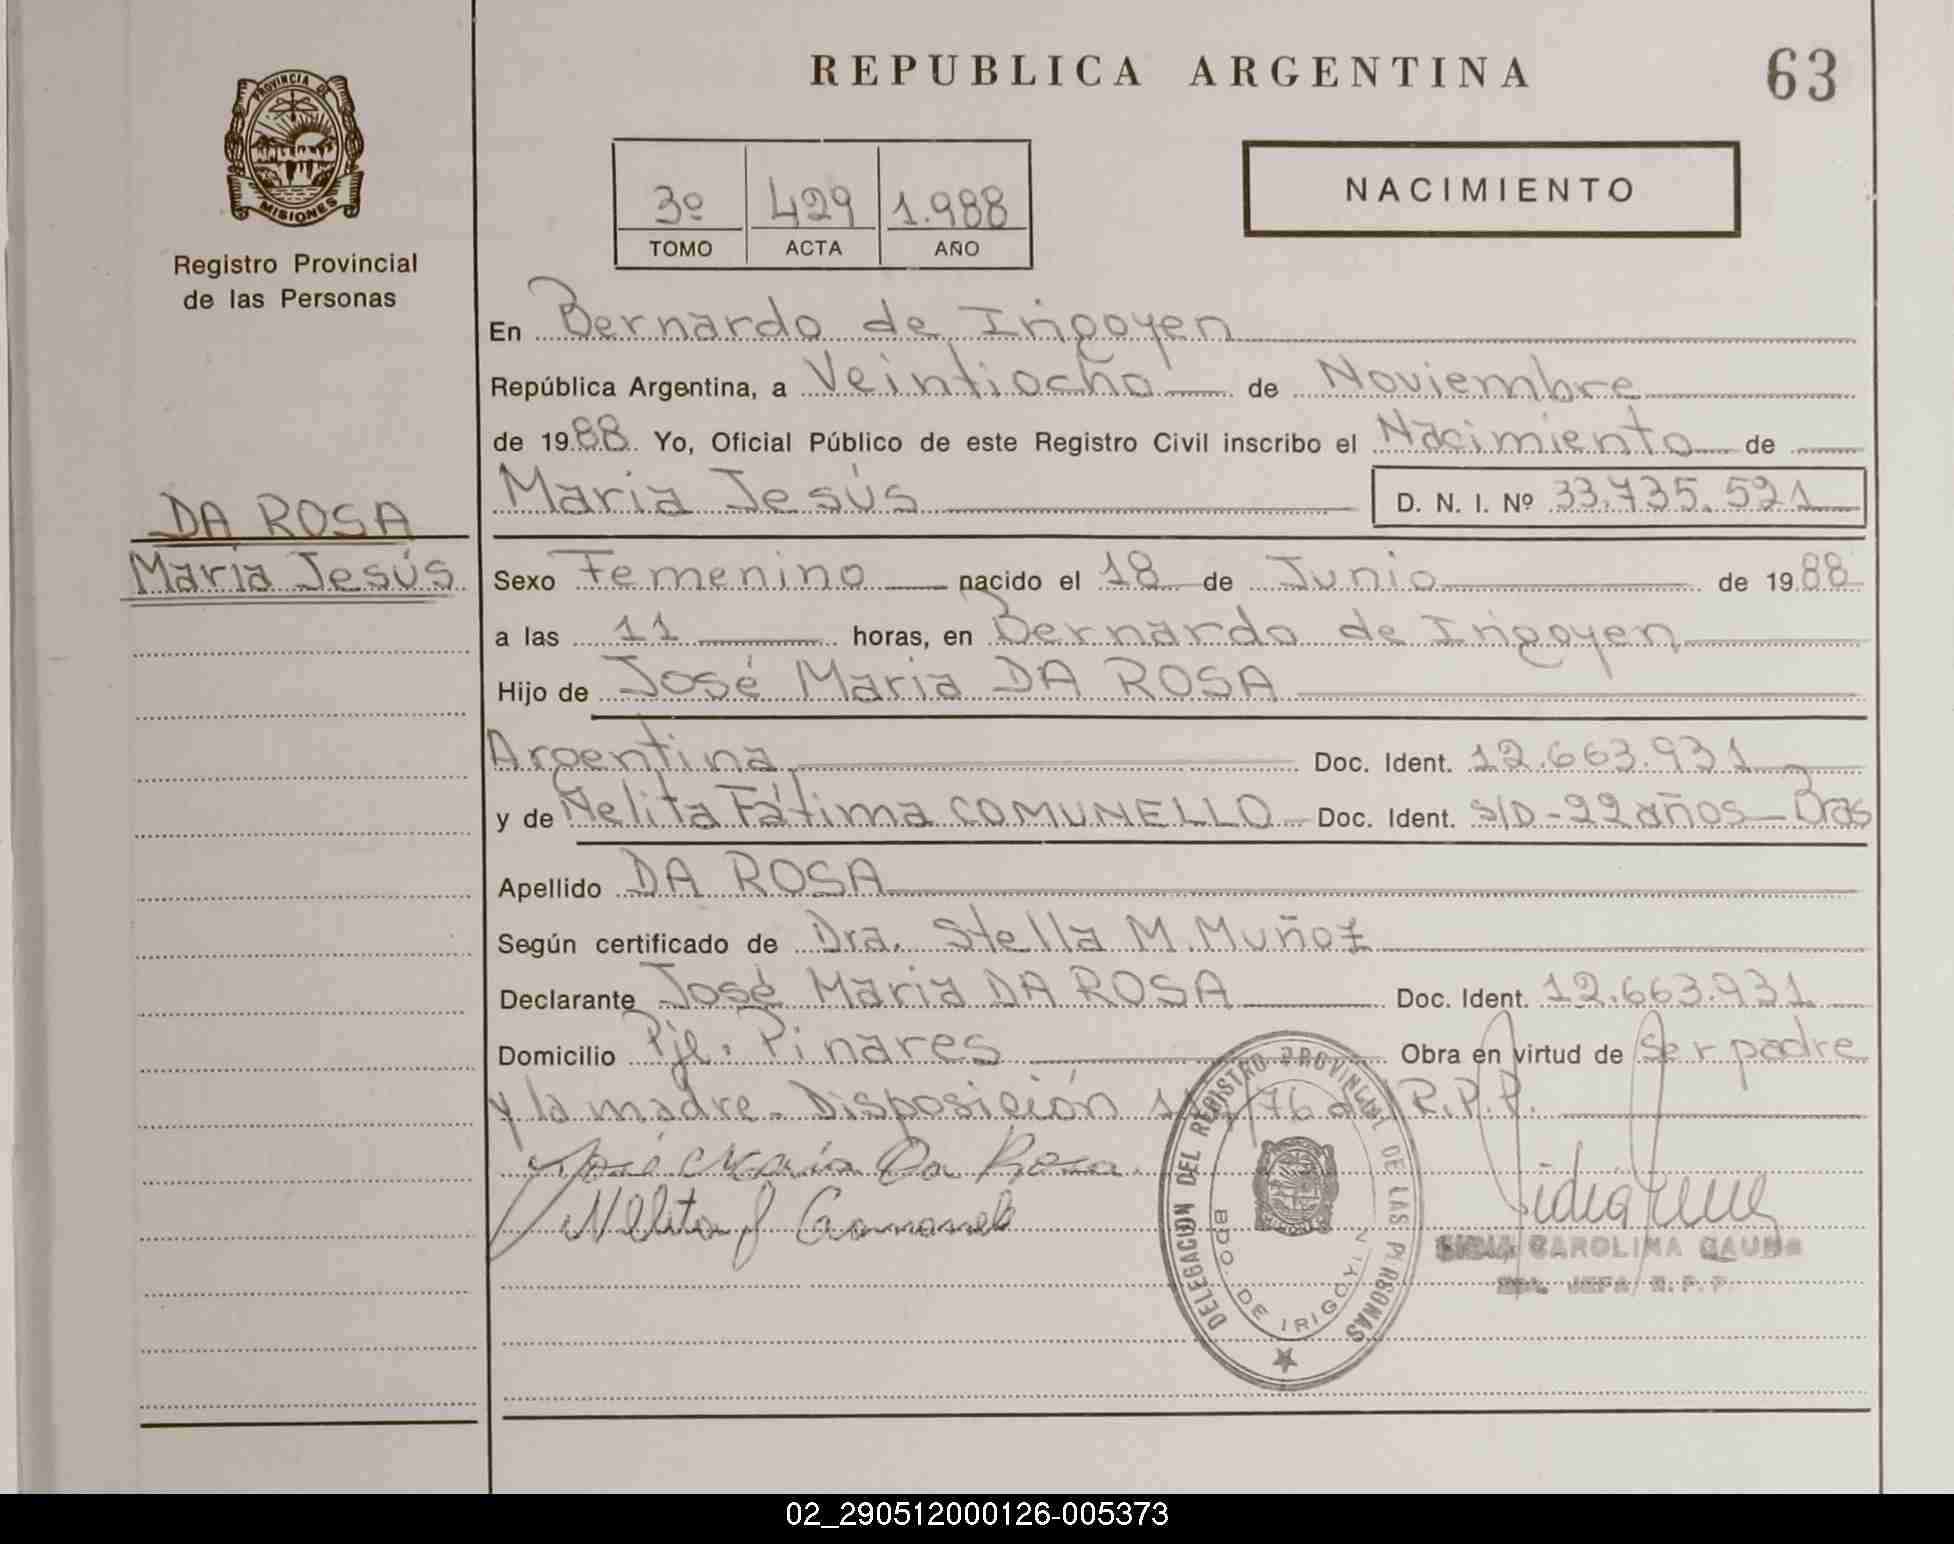 REPUBLICA ARGENTINA
63
PROVINCIA DE
MISIONES
Registro Provincial
de las Personas
3º 429 1.988
TOMO ACTA AÑO
NACIMIENTO
En Bernardo de Irigoyen
República Argentina, a Veintiocho de Noviembre
de 1988 Yo, Oficial Público de este Registro Civil inscribo el Nacimiento de
Maria Jesús D. N. I. Nº 33.735.521
DA ROSA
Maria Jesús
Sexo Femenino nacido el 18 de Junio de 1988
a las 11 horas, en Bernardo de Irigoyen
Hijo de José Maria DA ROSA
Argentina Doc. Ident. 12.663.931
y de Nelita Fátima COMUNELLO Doc. Ident. S/D-22 años-Bras
Apellido DA ROSA
Según certificado de Dra. Stella M. Muñoz
Declarante José Maria DA ROSA Doc. Ident. 12.663.931
Domicilio Pje. Pinares Obra en virtud de ser padre
y la madre- Disposición /76 del R.P.P.
José Maria Da Rosa
Nelita f
DELEGACION DEL REGISTRO PROVINCIAL DE LAS PERSONAS
BDO. DE IRIGOYEN
CAROLINA
JEFA R.P.P.
02_290512000126-005373